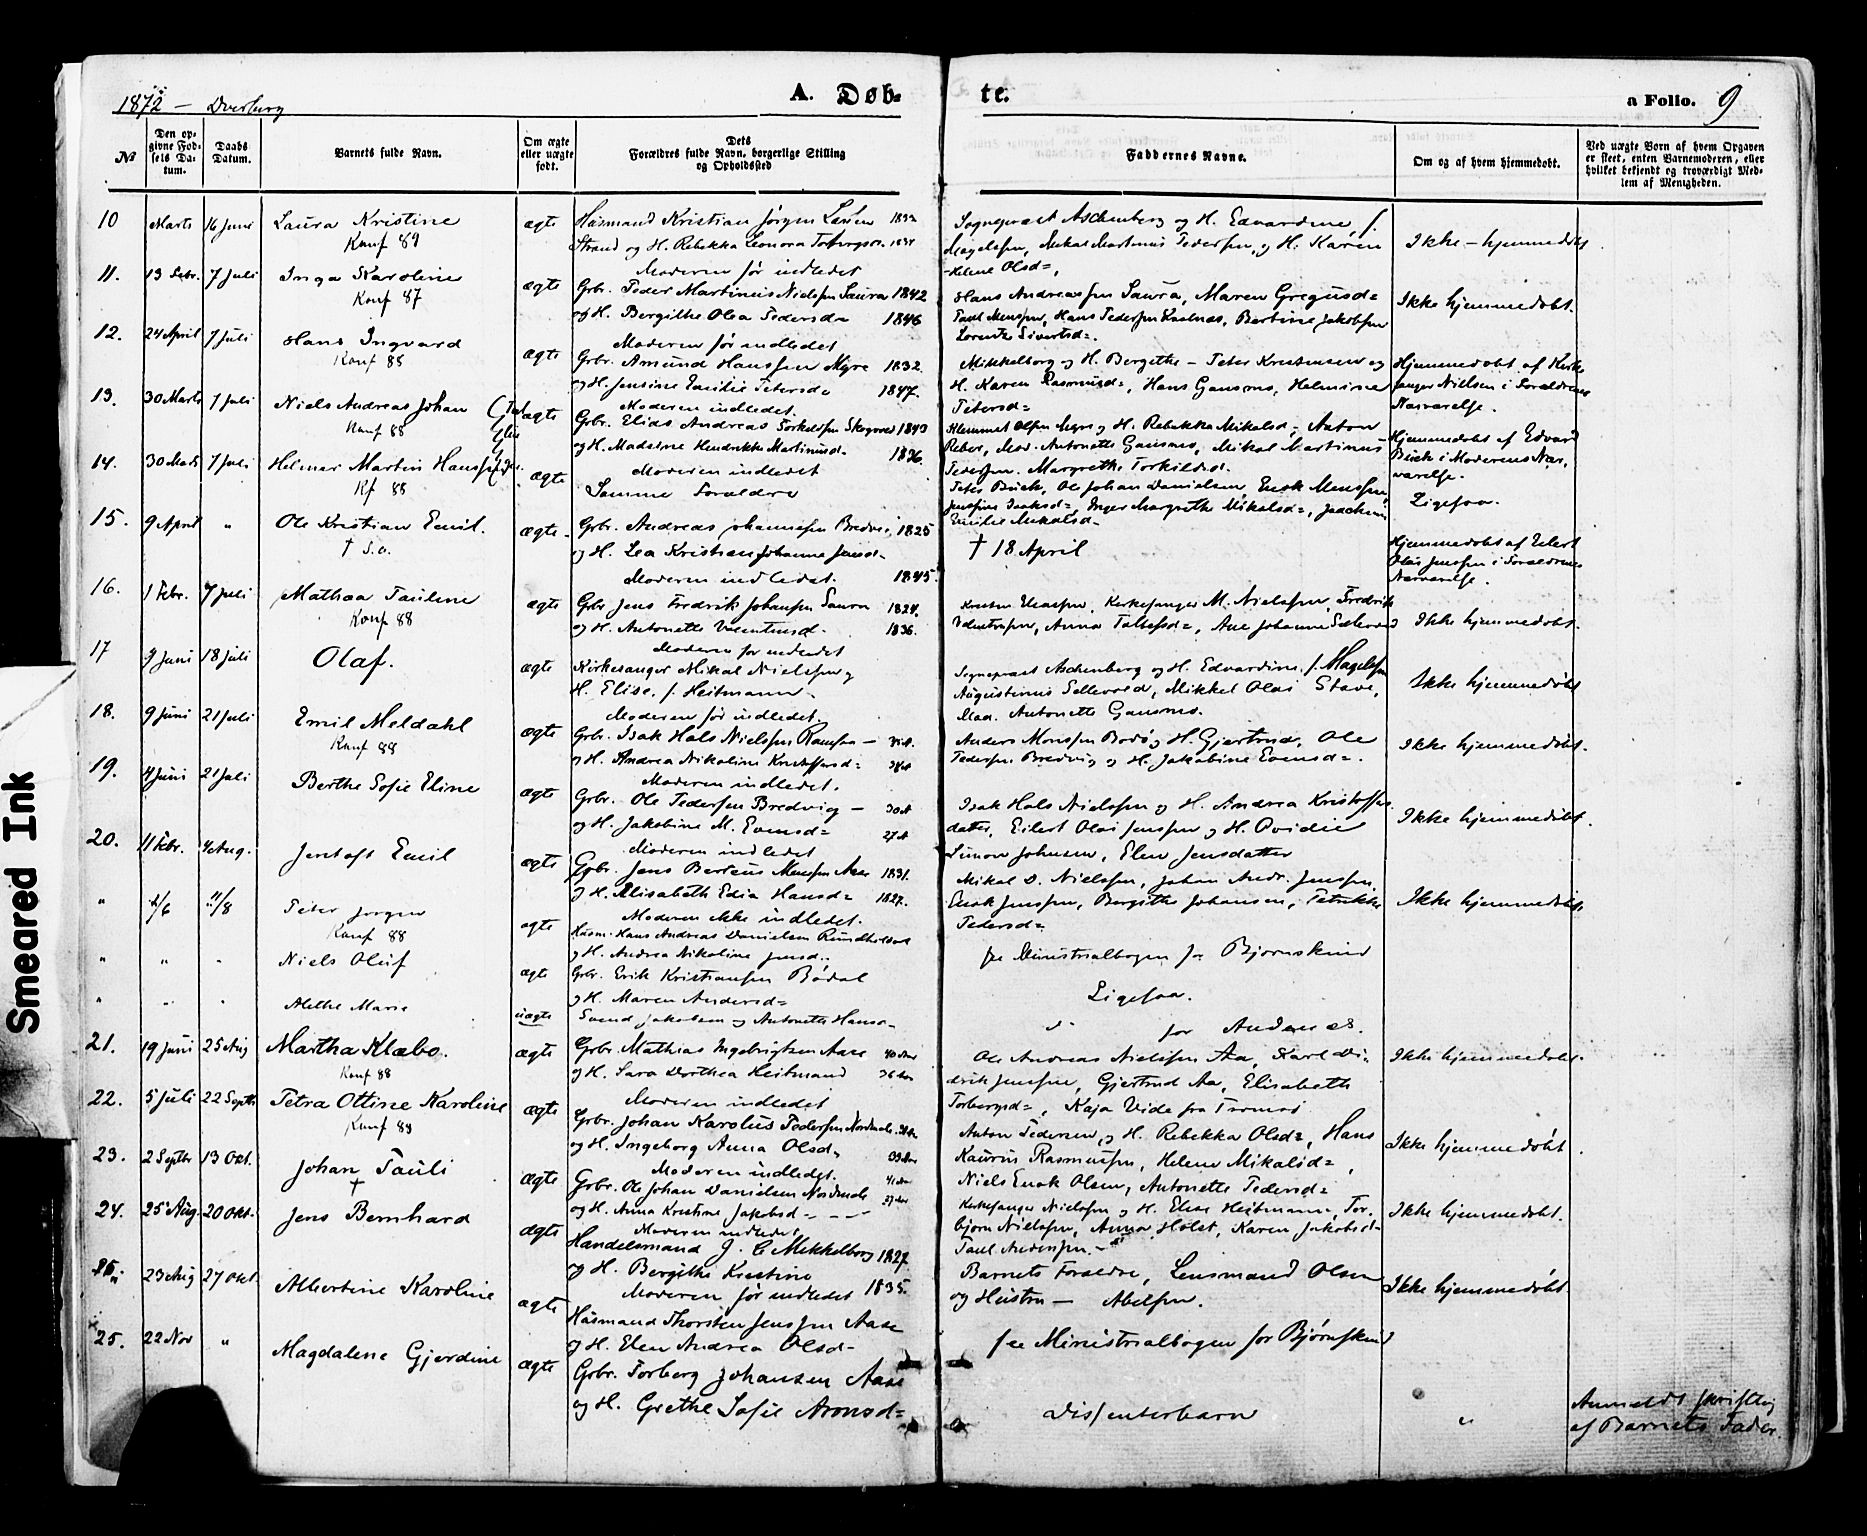 1872 – Dverberg
A. Døb-
te.
a Folio. 9
№
Den op-
givne Fød-
sels Da-
tum.
Daabs
Datum.
Barnets fulde Navn.
Om ægte
eller uægte
født.
Dets
Forældres fulde Navn, borgerlige Stilling
og Opholdssted
Faddernes Navne.
Om og af hvem hjemmedøbt.
Ved uægte Børn af hvem Opgaven
er skeet, enten Barnemoderen, eller
hvilket bekjendt og troværdigt Med-
lem af Menigheden.
10 Marts 16 Juni Laura Kristine
Konf 89
ægte
Husmand Kristian Jørgen
Strand og H. Rebekka Leonora
Moderen før indledet
Sogneprest Aschenberg og H. Edvardine, f.
Magelssen, Mikal Martinus Pedersen, og H. Karen
Helene Olsd=,
Ikke – hjemmedøbt.
11. 13 Febr. 7 Juli Inga Karoline
Konf 87
ægte
Grbr. Peder Martinus Nielssen Saura 1842
og H. Bergithe Olea Pedersd= 1846
Moderen før indledet
Hans Andreassen Saura, Maren Gregusd=
Paul Monssen, Hans Pederssen, Bertine Jakobsen
Sivertsd=.
Ikke hjemmedøbt.
12. 24 April 7 Juli Hans Ingvard
Konf 88
ægte
Grbr. Amund Hanssen Myre 1832.
og H. Jensine Emilie Petersd= 1847.
Moderen indledet.
Mikkelborg og H. Bergithe – Peter og
H. Karen Rasmusd=, Hans Gausnes, Helmine
Petersd=
Hjemmedøbt af Kirke-
sanger Nielsen i Forældrenes
Nærværelse.
13. 30 Marts 7 Juli Niels Andreas Johan
Konf 88
ægte
Grbr. Elias Andreas Torkelssen Skogvoll 1843
og H. Madsine Hendrikke Martinusd= 1836.
Moderen indledet
Klemmet Olsen Myre og H. Rebekka Mikalsd=, Anton
Reber, Mad. Antonette Gausnes, Mikal Martinus
Pederssen. Margrethe Torkildsd.
Hjemmedøbt af Edvard
Buck i Moderens Nær-
værelse.
14. 30 Marts 7 Juli Helmer Martin Hanssen
Kf 88
ægte
Samme Forældre
Peter Buck, Ole Johan Danielsen, Enok Monssen,
Isaksd=, Inger Margrethe Mikalsd=, Joachim
Emilie Mikalsd=
Ligesaa.
15. 9 April " Ole Kristian Emil.
† S.a.
ægte
Grbr. Andreas Johannessen Bredvi 1825
og H. Lea Kristian Johanne Jensd=
Moderen indledet. 1845.
† 18 April
Hjemmedøbt af Eilert
Olai Jenssen i Forældrenes
Nærværelse.
16. 1 Febr. 7 Juli Mathea Pauline
Konf 88
ægte
Grbr. Jens Fredrik Johanssen Saura 1824.
og H. Antonette 1836.
Moderen før indledet
Kirkesanger M. Nielssen, Fredrik
Anna, Ane Johanna Sellevold
Ikke hjemmedøbt.
17 9 Juni 18 Juli Olaf.
ægte
Kirkesanger Mikal Nielssen og
H. Elise, f. Heitmann.
Moderen før indledet.
Sogneprest Aschenberg og H. Edvardine, f. Magelssen
Augustinus Sellevold, Mikkel Olai Stave,
Mad. Antonette Gausnes.
Ikke hjemmedøbt
18. 9 Juni 21 Juli Emil Meldahl
Konf 88
ægte
Grbr. Isak Hals Nielssen Ramsaa –
og H. Andrea Nikoline Kristoffersd=
Moderen indledet.
Anders Monssen Bodø og H. Gjertrud, Ole
Pederssen Bredvig og H. Jakobine Evensd=.
Ikke hjemmedøbt.
19. 4 Juni 21 Juli Berthe Sofie Eline
ægte
Grbr. Ole Pederssen Bredvig –
og H. Jakobine M. Evensd=
Moderen indledet
Isak Hals Nielssen og H. Andrea Kristoffers-
datter, Eilert Olai Jenssen og H. Ovidie
Simon Johnsen, Elen Jensdatter
Ikke hjemmedøbt.
20. 11 Febr. 4 Aug. Jentoft Emil
ægte
Grbr. Jens Berteus Monssen Aase 1831.
og H. Elisabeth Edia Hansd= 1827.
Moderen ikke indledet.
Mikal D. Nielssen, Johan Andr. Jenssen,
Enok Jenssen, Bergithe Johansen, Petrikke
Pedersd=
Ikke hjemmedøbt.
" 2/6 11/8 Peter Jørgen
Konf 88
ægte
Husm. Hans Andreas Danielsen
og H. Andrea Nikoline Jensd=
fra Ministrialbogen for Bjørnskind
" " " Niels Oluf
ægte
Grbr. Erik Kristianssen Bødal
og H. Maren Andersd=
Ligesaa.
" " " Alethe Marie
uægte
Svend Jakobsen og Antonette Hansd=
" for Andenes.
21. 19 Juni 25 Aug Martha Klæbo.
Konf 88
ægte
Grbr. Mathias Ingebrigtsen Aase 40 Aar
og H. Sara Dorthea Heitmand 36 Aar
Moderen indledet
Ole Andreas Nielssen Aa, Karl Di-
drik Jenssen, Gjertrud Aa, Elisabeth
Torbergsd=, Kaja Vide fra Tromsø
Ikke hjemmedøbt.
22. 5 Juli 22 Septb Petra Ottine Karoline
Konf 89
ægte
Grbr. Johan Karolus Pederssen Nordmela
og H. Ingeborg Anna Olsd=
Moderen indledet.
Anton Pedersen, og H. Rebekka Olsd=, Hans
Kaurin Rasmussen, Helene Mikalsd=,
Niels Enok Olsen, Antonette Pedersd=
Ikke hjemmedøbt.
23. 2 Septbr 13 Okt. Johan Pauli
†
ægte
Grbr. Ole Johan Danielsen Nordmela
og H. Anna Kristine Jakobsd=
Moderen indledet
Kirkesanger Nielssen og H. Elise Heitmann, Tor-
bjørn Nielssen, Anna Holst, Karen Jakobsd=
Paul Anderssen.
Ikke hjemmedøbt.
24. 25 Aug. 20 Okt. Jens Bernhard
ægte
Handelsmand J. C. Mikkelborg 1827.
og H. Bergithe Kristine 1835.
Moderen før indledet
Barnets Forældre, Lensmand Olsen
og Hustru – Abelsen.
Ikke hjemmedøbt
23 Aug 27 Okt. Albertine Karoline
ægte
Husmand Thorsten Jenssen Aase
og H. Elen Andrea Olsd=
fra Ministrialbogen for Bjørnskind
25. 22 Nov " Magdalene Gjerdine
ægte
Grbr. Torberg Johansen Aase
og H. Grethe Sofie Aronsd=
Dissenterbarn
"
Anmeldt skriftlig
af Barnets Fader.
Smeared Ink